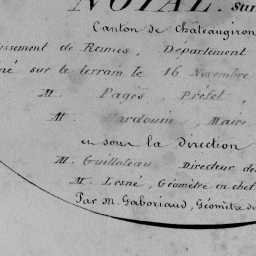 NOYAL. sur
Canton de Chateaugiron
issement de Rennes, Département
né sur le terrain le 16 Novembre
M. Pagès, Préfet,
M. Hardouin, Maire
en sous la direction
M. Guilloteau, Directeur des
M. Lesné, Géomètre en chef
Par M. Gaboriaud, Géomètre de